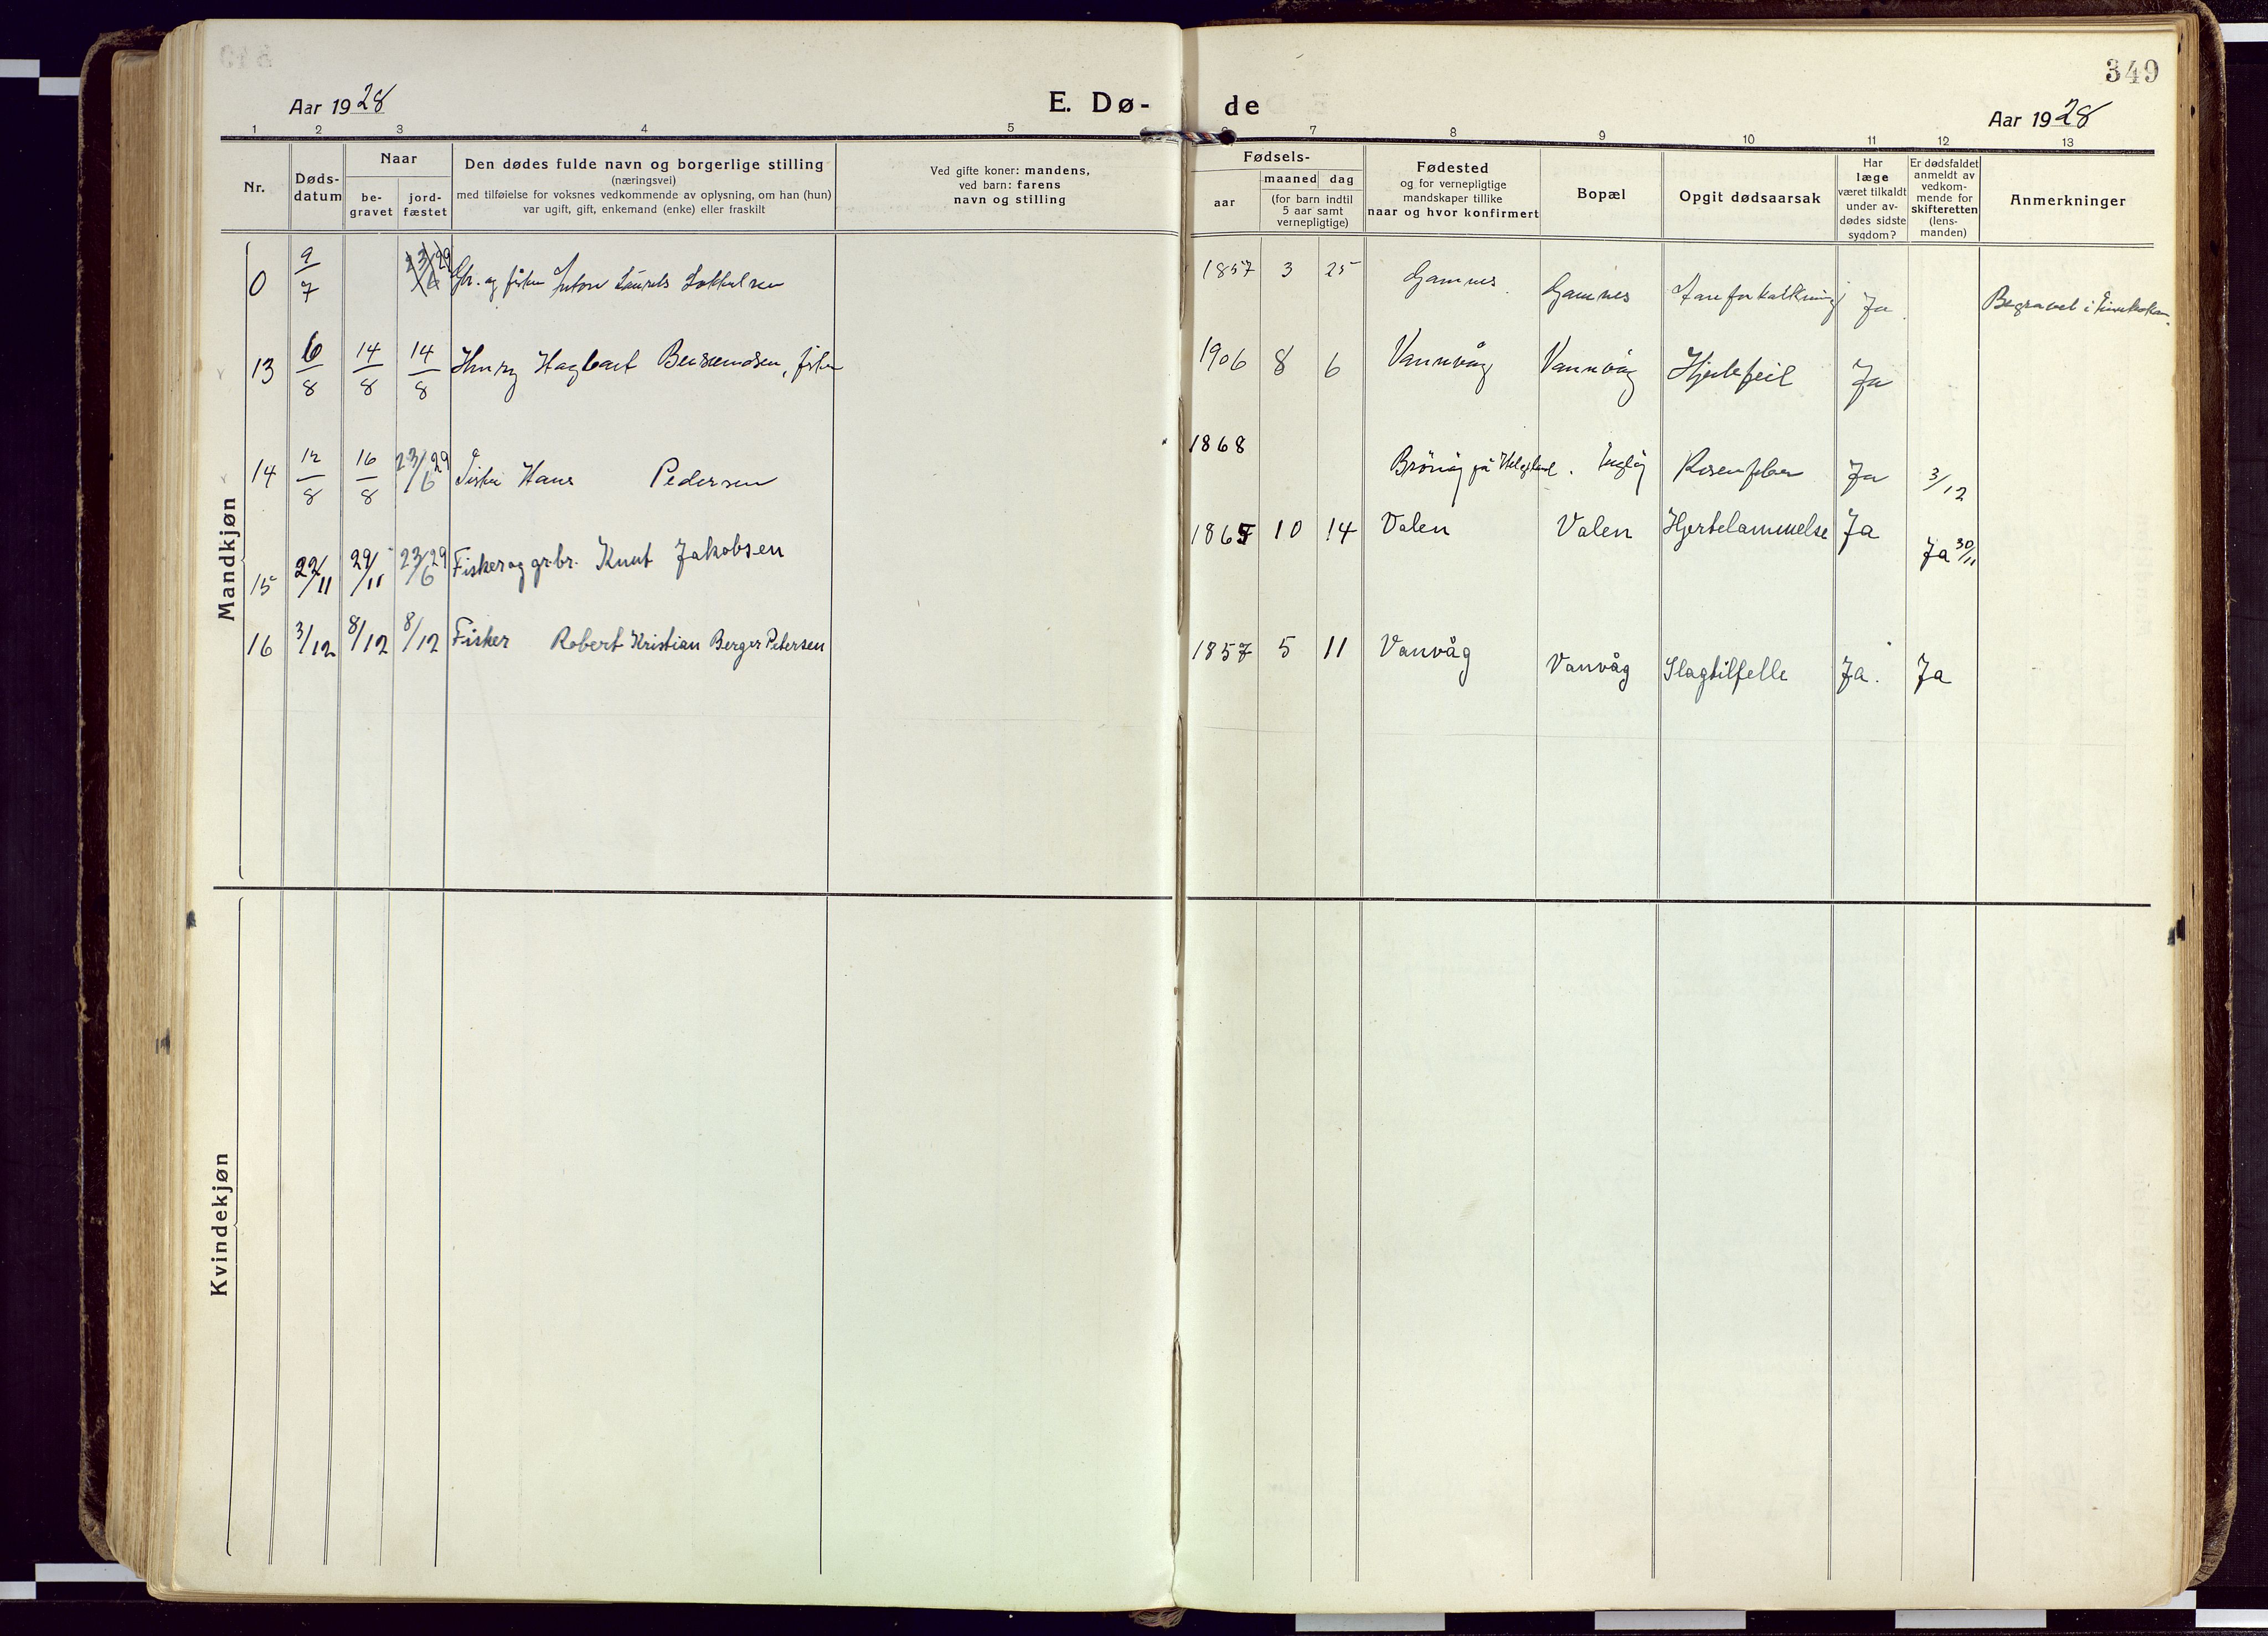 349
Aar 1928
E. Dø-
de
Aar 1928
1 2 3 4 5 6 7 8 9 10 11 12 13
Nr.
Døds-
datum
Naar
be-
gravet
jord-
fæstet
Den dødes fulde navn og borgerlige stilling
(næringsvei)
med tilføielse for voksnes vedkommende av oplysning, om han (hun)
var ugift, gift, enkemand (enke) eller fraskilt
Ved gifte koner: mandens,
ved barn: farens
navn og stilling
Fødsels-
aar
maaned dag
(for barn indtil
5 aar samt
vernepligtige)
Fødested
og for vernepligtige
mandskaper tillike
naar og hvor konfirmert
Bopæl
Opgit dødsaarsak
Har
læge
været tilkaldt
under av-
dødes sidste
sygdom?
Er dødsfaldet
anmeldt av
vedkom-
mende for
skifteretten
(lens-
manden)
Anmerkninger
Mandkjøn
0 9/7 23/6 29 Gbr. og fisker 1857 3 25 Gamnes Gamnes Ja Begravet i
13 6/8 14/8 14/8 Henry Hagbart fisker 1906 8 6 Vannvåg Vannvåg Hjertefeil Ja
14 12/8 16/8 23/6 29 Fisker Hans Pedersen 1868 Brönöy på Helgeland. Rosenfeber Ja 3/12
15 22/11 29/11 23/6 29 Fisker og gr.br. Knut Jakobsen 10 14 Valen Valen Hjertelammelse Ja Ja 30/11
16 3/12 8/12 8/12 Fisker Robert Kristian Berger Petersen 1857 5 11 Vanvåg Vanvåg Slagtilfelle Ja. Ja
Kvindekjøn